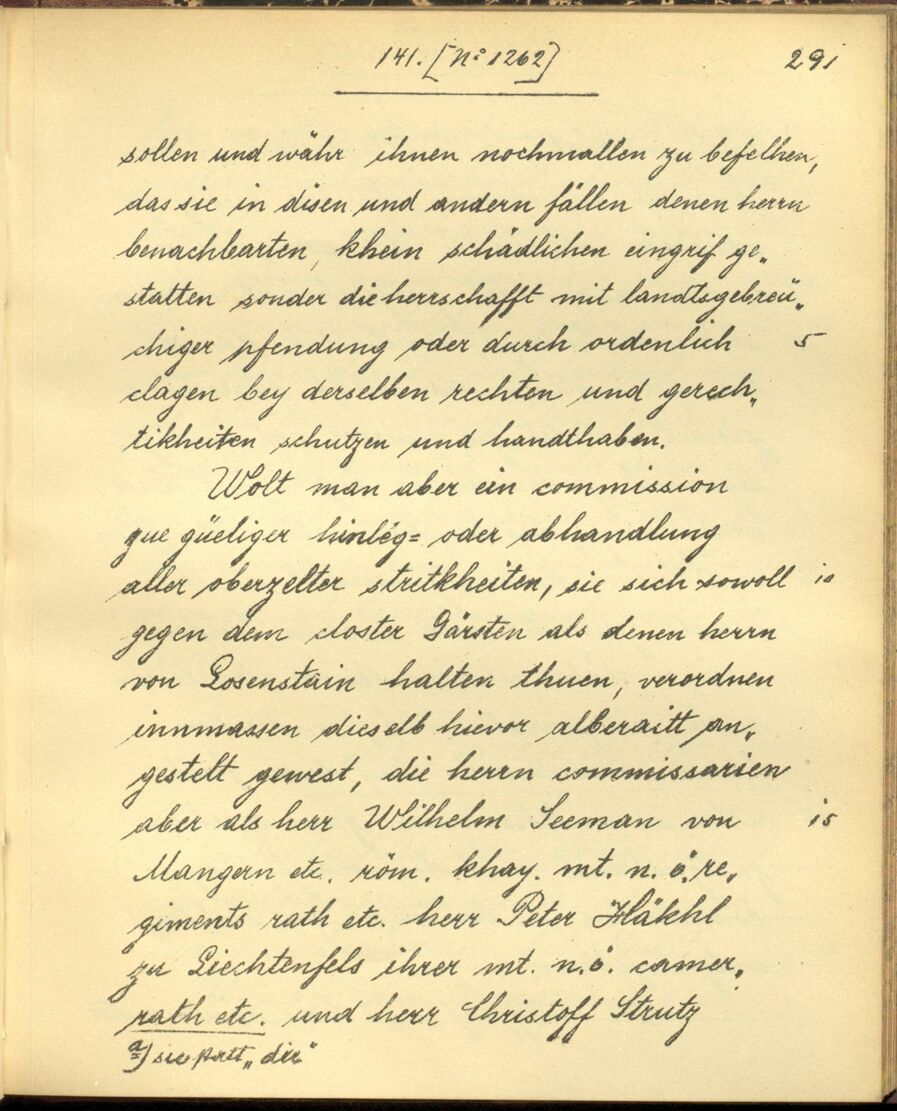 141. [No 1262]
291
sollen und währ ihnen nochmallen zu befelhen,
das sie in disen und andern fällen denen herrn
benachbarten, khein schädlichen eingrif ge„
statten sonder die herrschafft mit landtsgebreü„
chiger pfendung oder durch ordenlich 5
clagen bey derselben rechten und gerech„
tikheiten schutzen und handthaben.
Wolt man aber ein commission
zue güeliger hinleg= oder abhandlung
aller oberzelter stritkheiten, sie sich sowoll 10
gegen dem closter Gärsten als denen herrn
von Losenstain halten thuen, verordnen
innmassen dieselb hievor alberaitt an„
gestelt gewest, die herrn commissarien
aber als herr Wilhelm Seeman von 15
Mangern etc. röm. khay. mt. n. ö. re„
giments rath etc. herr Peter Häkhl
zu Liechtenfels ihrer mt. n. ö. camer„
rath etc. und herr Christoff Strutz
a) sie statt „die“